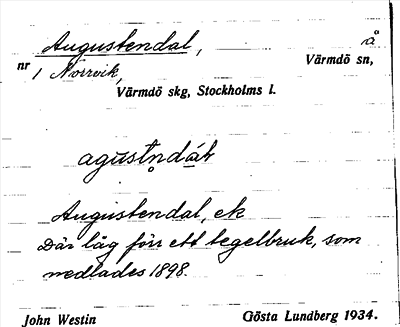 Augustendal, å
nr 1 Norrvik, Värmdö sn,
Värmdö skg, Stockholms l.
agustn̥dáɫ
Augustendal, ek
Där låg förr ett tegelbruk, som
nedlades 1898.
John Westin Gösta Lundberg 1934.